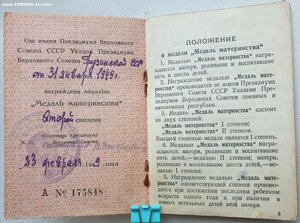 www.FORUMS-SU.com
От имени Президиума Верховного
Совета СССР Указом Президиума
Верховного Совета Грузинской ССР
от 31 января 1949 г.
награждена медалью
„Медаль материнства"
второй степени
Секретарь Президиума
Верховного Совета
23 февраля 9 года
А № 175848
ПОЛОЖЕНИЕ
о медали „Медаль материнства"
1. Медалью „Медаль материнства" на-
граждаются матери, родившие и воспитав-
шие пять и шесть детей.
2. Награждение медалью „Медаль мате-
ринства" производится от имени Президиума
Верховного Совета СССР Указами Прези-
диумов Верховных Советов союзных и
республик.
3. „Медаль материнства" состоит из
двух степеней:
„Медаль материнства" I степени,
„Медаль материнства" II степени.
Высшей степенью медали является I степень.
4. Медалью материнства награждаются
матери, родившие и воспитавшие пять
детей,— медалью II степени; родившие и
воспитавшие шесть детей,— медалью
I степени.
5. Награждение „Медалью материнства"
соответствующей степени производится
при достижении последним ребенком
одного года и при наличии в
живых остальных детей этой матери.
3